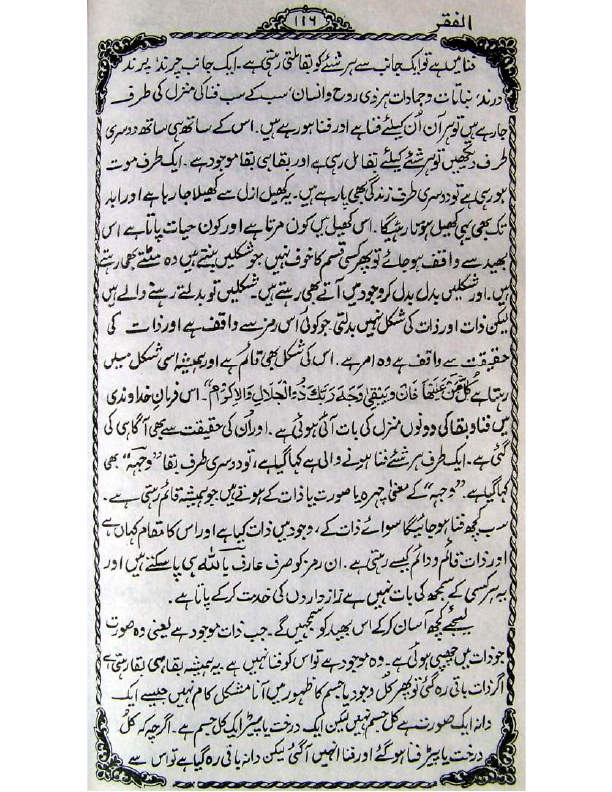 الفقر ۱۱۶
فنا میں ہے تو ایک جانب سے ہر شئے کو بقا ملتی رہتی ہے۔ ایک جانب چرند' پرند'
درند' نباتات و جمادات ہر ذی روح و انسان' سب کے سب فنا کی منزل کی طرف
جا رہے ہیں تو ہر آن اُن کیلئے فنا ہے اور فنا ہو رہے ہیں۔ اس کے ساتھ ہی ساتھ دوسری
طرف دیکھیں تو ہر شئے کیلئے بقا مل رہی ہے اور بقا ہی بقا موجود ہے۔ ایک طرف موت
ہو رہی ہے تو دوسری طرف زندگی بھی پا رہے ہیں۔ یہ کھیل ازل سے کھیلا جا رہا ہے اور ابد
تک بھی یہی کھیل ہوتا رہیگا۔ اس کھیل میں کون مرتا ہے اور کون حیات پاتا ہے اس
بھید سے واقف ہو جائے تو پھر کسی قسم کا خوف نہیں جو شکلیں بنتے ہیں وہ مٹتے بھی رہتے
ہیں۔ اور شکلیں بدل بدل کر وجود میں آتے بھی رہتے ہیں۔ شکلیں تو بدلتے رہنے والے ہیں
لیکن ذات اور ذات کی شکل نہیں بدلتی جو کوئی اُس رمز سے واقف ہے اور ذات کی
حقیقت سے واقف ہے وہ امر ہے۔ اس کی شکل بھی قائم ہے اور ہمیشہ اسی شکل میں
رہتا ہے کُلُّ مَنْ عَلَیْهَا فَانٍ وَیَبْقٰی وَجْهُ رَبِّكَ ذُو الْجَلَالِ وَالْاِكْرَامِ"۔ اس فرمانِ خداوندی
میں فنا و بقا کی دونوں منزل کی بات آئی ہوئی ہے۔ اور اُن کی حقیقت سے بھی آگاہی کی
گئی ہے۔ ایک طرف ہر شئے فنا ہونے والی ہے کہا گیا ہے، تو دوسری طرف بقا "وجہہ" بھی
کہا گیا ہے۔ "وجہہ" کے معنیٰ چہرہ یا صورت یا ذات کے ہوتے ہیں جو ہمیشہ قائم رہتی ہے۔
سب کچھ فنا ہو جائیگا سوائے ذات کے، وجود میں ذات کیا ہے اور اس کا مقام کہاں ہے
اور ذات قائم و دائم کیسے رہتی ہے۔ ان رمز کو صرف عارف باللہ ہی پا سکتے ہیں اور
یہ ہر کسی کے سمجھ کی بات نہیں ہے راز داروں کی خدمت کر کے پاتا ہے۔
لیجئے کچھ آسان کر کے اس بھید کو سمجھیں گے۔ جب ذات موجود ہے یعنی وہ صورت
جو ذات میں چھپی ہوئی ہے۔ وہ موجود ہے تو اس کو فنا نہیں ہے۔ یہ ہمیشہ بقا ہی بقا رہتی ہے
اگر ذات باقی رہ گئی تو پھر کُل وجود یا جسم کا ظہور میں آنا مشکل کام نہیں جیسے ایک
دانہ ایک صورت ہے کل جسم نہیں لیکن ایک درخت یا پیڑ ایک کل جسم ہے۔ اگرچہ کہ کُل
درخت یا پیڑ فنا ہو گئے اور فنا انہیں آ گئی لیکن دانہ باقی رہ گیا ہے تو اس سے